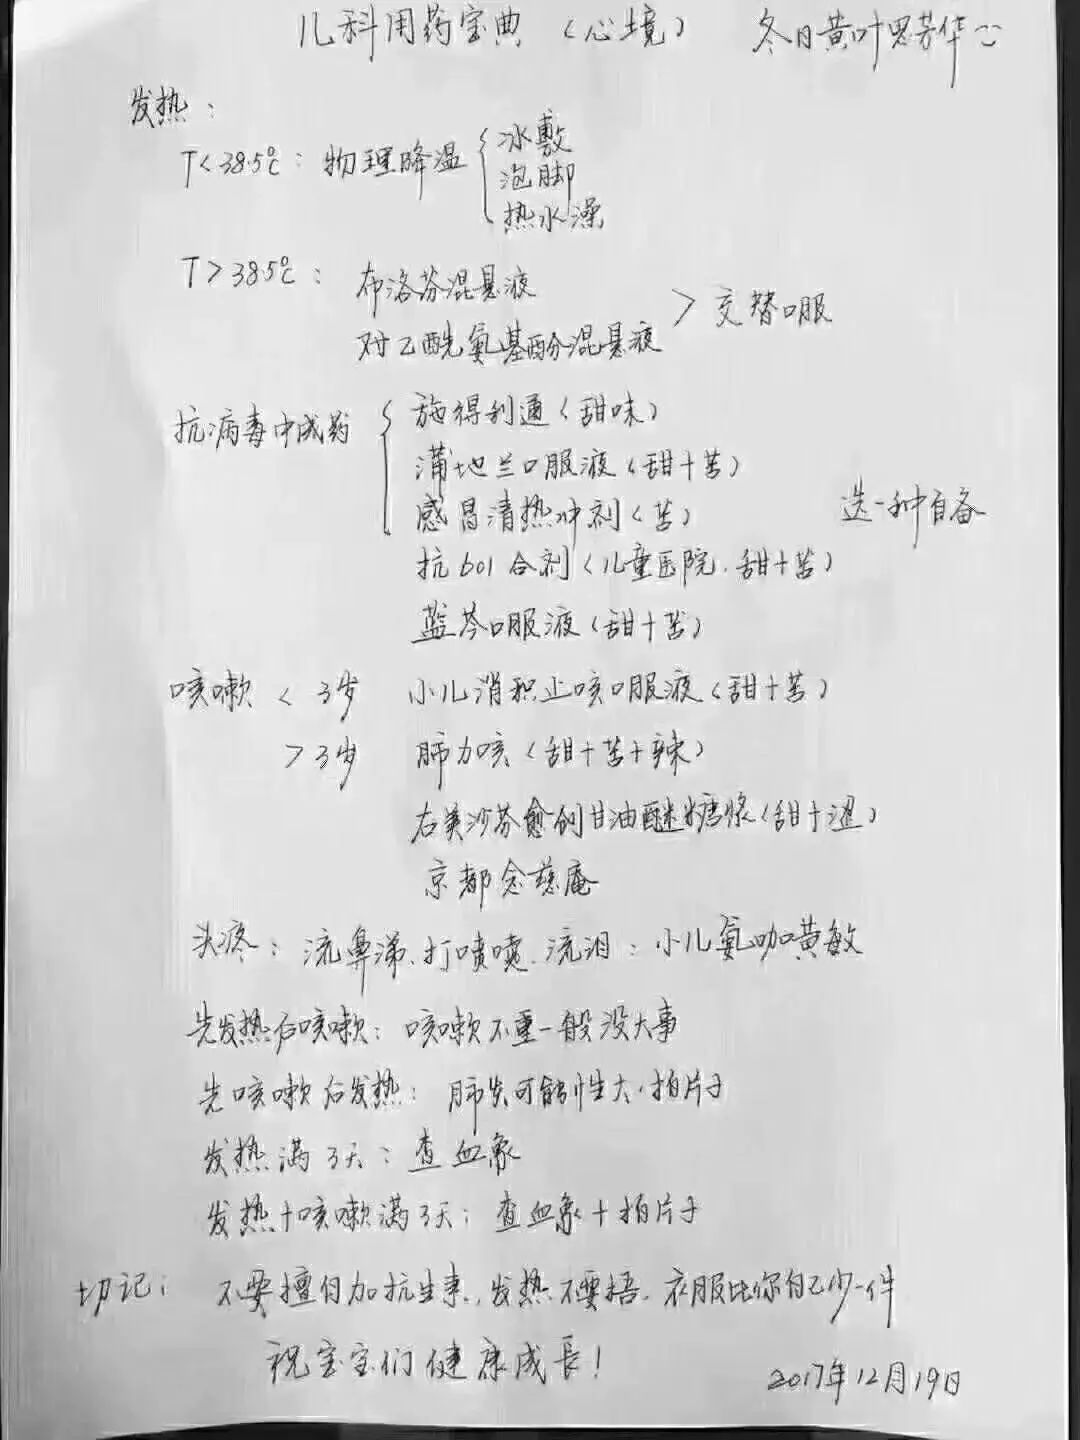 儿科用药宝典（心境） 冬日黄叶思芳华
发热：
T<38.5℃：物理降温 { 冰敷
泡脚
热水澡
T>38.5℃： 布洛芬混悬液
对乙酰氨基酚混悬液 > 交替口服
抗病毒中成药 { 施得利通（甜味）
蒲地兰口服液（甜+苦）
感冒清热冲剂（苦） 选一种自备
抗601合剂（儿童医院.甜+苦）
蓝芩口服液（甜+苦）
咳嗽 < 3岁 小儿消积止咳口服液（甜+苦）
>3岁 肺力咳（甜+苦+辣）
右美沙芬愈创甘油醚糖浆（甜+涩）
京都念慈庵
头疼：流鼻涕.打喷嚏.流泪：小儿氨咖黄敏
先发热后咳嗽：咳嗽不重一般没大事
先咳嗽后发热：肺炎可能性大.拍片子
发热满3天：查血象
发热+咳嗽满3天：查血象+拍片子
切记：不要擅自加抗生素，发热不要捂.衣服比你自己少一件
祝宝宝们健康成長！
2017年12月19日